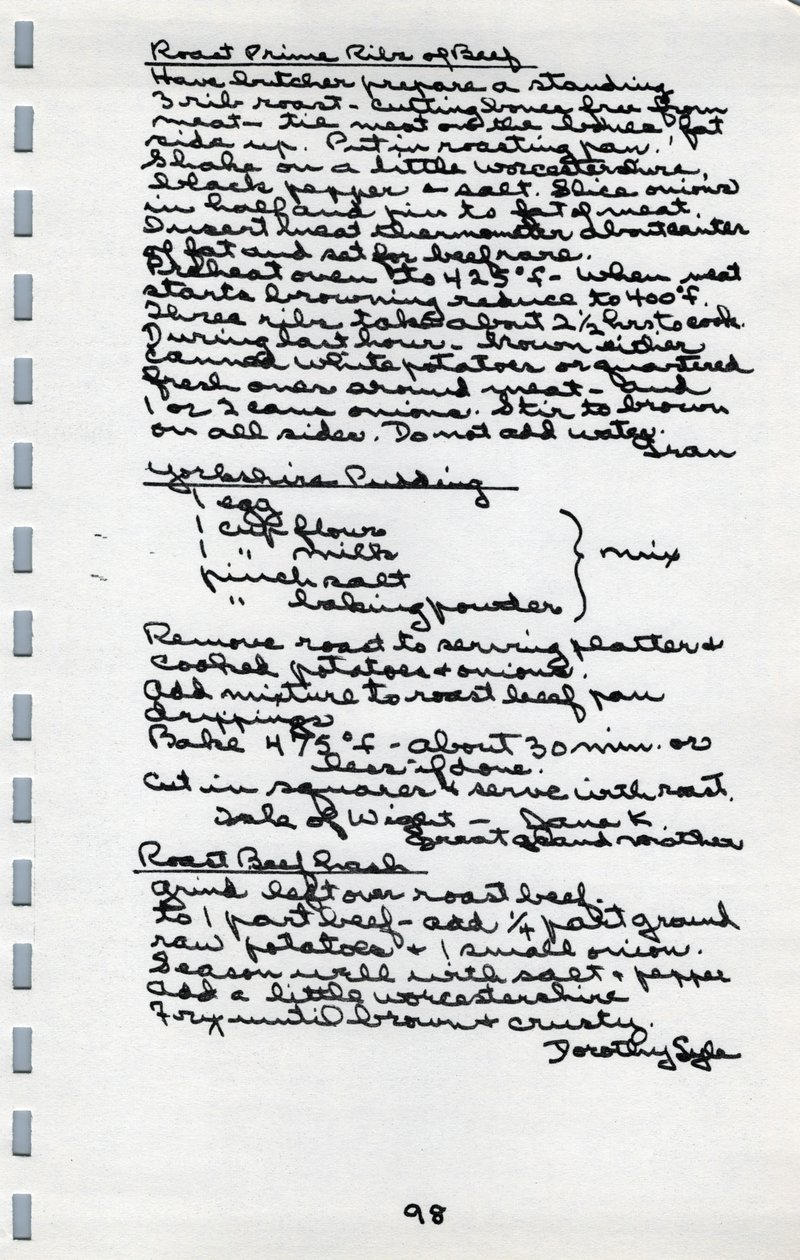 Roast Prime Ribs of Beef
Have butcher prepare a standing
3 rib roast - cutting bones free from
meat - tie meat on the bones, fat
side up. Put in roasting pan.
Shake on a little worcestershire,
black pepper & salt. Slice onions
in half and pin to fat of meat.
Insert meat thermometer about center
of fat and set for beef rare.
Preheat oven to 425°f - When meat
starts browning reduce to 400°f.
Three ribs take about 2 1/2 hrs to cook.
During last hour - brown either
canned white potatoes or quartered
fresh ones around meat - and
1 or 2 cans onions. Stir to brown
on all sides. Do not add water.
Fran
Yorkshire Pudding
1 egg
1 cup flour
1 " milk
pinch salt
" baking powder } mix
Remove roast to serving platter &
cooked potatoes & onions.
Add mixture to roast beef pan
drippings
Bake 475°f - about 30 min. or
less if done.
Cut in squares & serve with roast.
Isle of Wight - Jane K.
Great grand mother
Roast Beef hash
Grind left over roast beef.
to 1 part beef - add 1/4 part ground
raw potatoes & 1 small onion.
Season well with salt & pepper
add a little worcestershire
Fry until brown & crusty.
Dorothy
98